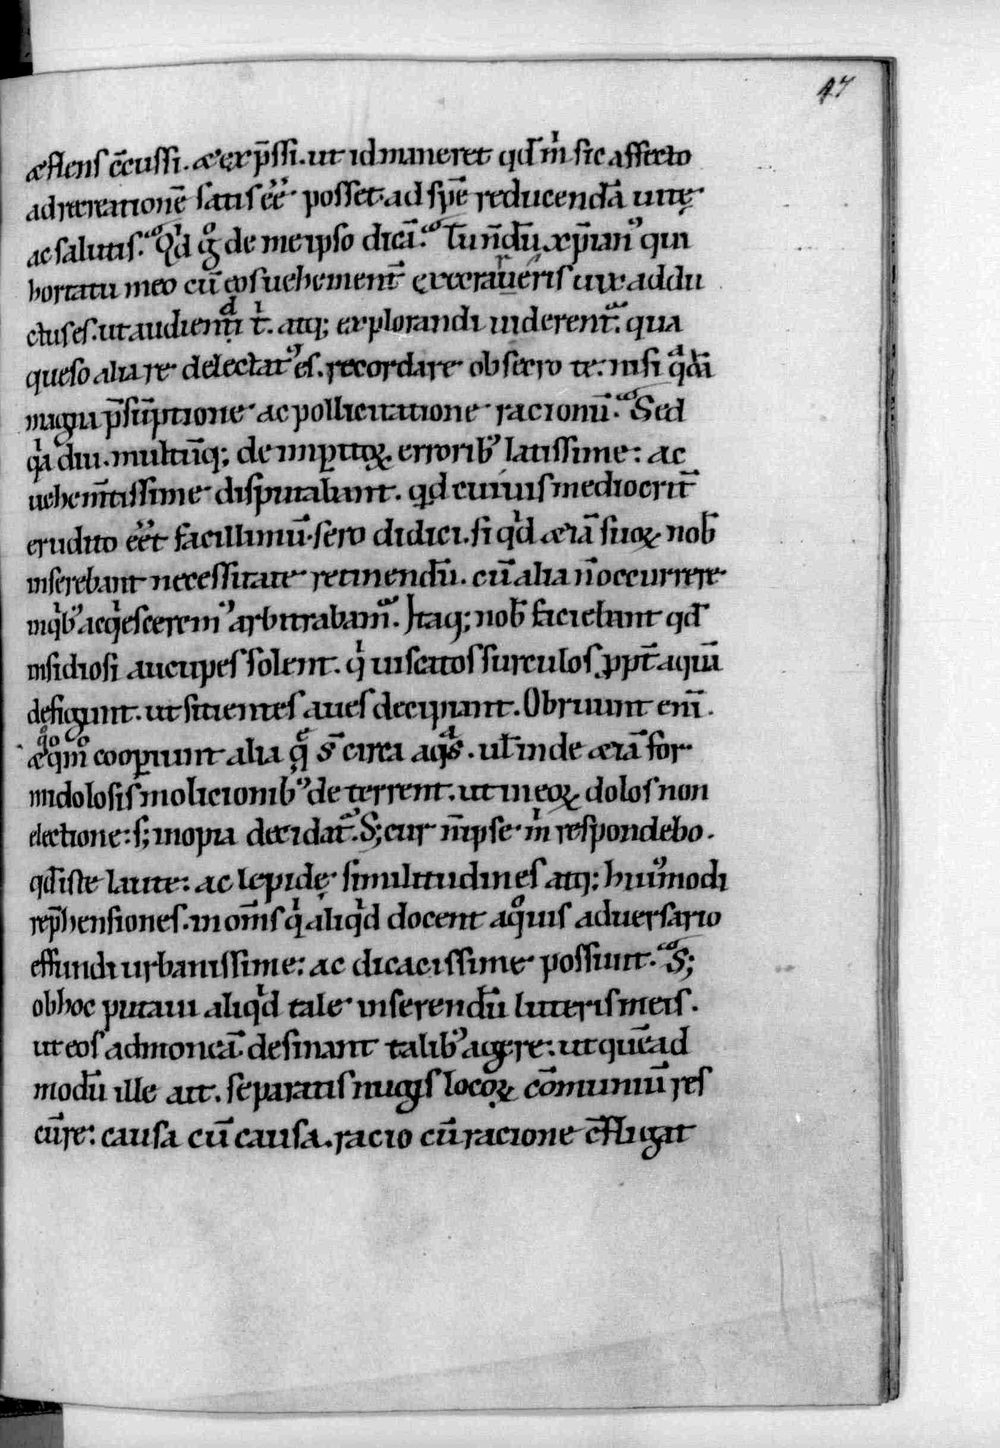 47
æflens c̄cussi. æ exp̄ssi. ut id maneret qd̄ m̍ sic affecto
ad recreationē satis ēē posset. ad spē reducendā uitę
ac salutis. Qd̍ g̊ de me ipso dicā. Tu n̄dū xp̄ian᾽ qui
hortatu meo cū eos uehement̄ execraueris uix addu
ctus es. ut audiendi t̍. atq; explorandi uiderent᷑. qua
queso alia re delectat᾽ es. recordare obsecro te. nisi qͣdā
magna p̄sūptione ac pollicitatione racionū. Sed
qͥa diu. multūq; de impitoꝝ errorib᾽ latissime: ac
uehem̄tissime disputabant. qd cuiuis mediocrit̄
erudito ēēt facillimū. sero didici. si qͥd æiā suoꝝ nob̄
inserebant necessitate retinendū. cū alia n̄ occurrere
in qͥb᾽ acqͥescerem᾽ arbitrabam᷑. Itaq; nob̄ faciebant qd̄
insidiosi aucupes solent. qͥ uiscatos surculos ꝓpt̄ aquā
defigunt. ut sitientes aues decipiant. Obruunt eni̅.
æ qͦqͦ m̊ coopiunt alia q̨ͣ s̄ circa aqͣs. ul̄ inde æiā for
midolosis molicionib᾽ deterrent. ut in eoꝝ dolos non
electione: s; inopia decidat᷑. S; cur m̄ ipse m̍ respondebo.
qd̄ iste laute: ac lepidę similitudines atq; hui᾽modi
rep̄hensiones. in om̄s qͥ aliqͥd docent aqͦuis aduersario
effundi urbanissime: ac dicacissime possunt. S;
ob hoc putaui aliqͥd tale inserendū litteris meis.
ut eos admoneā. desinant talib᾽ agere: ut quēad
modū ille ait. separatis nugis locoꝝ cōmuniū res
cū re: causa cū causa. racio cū racione c̄fligat